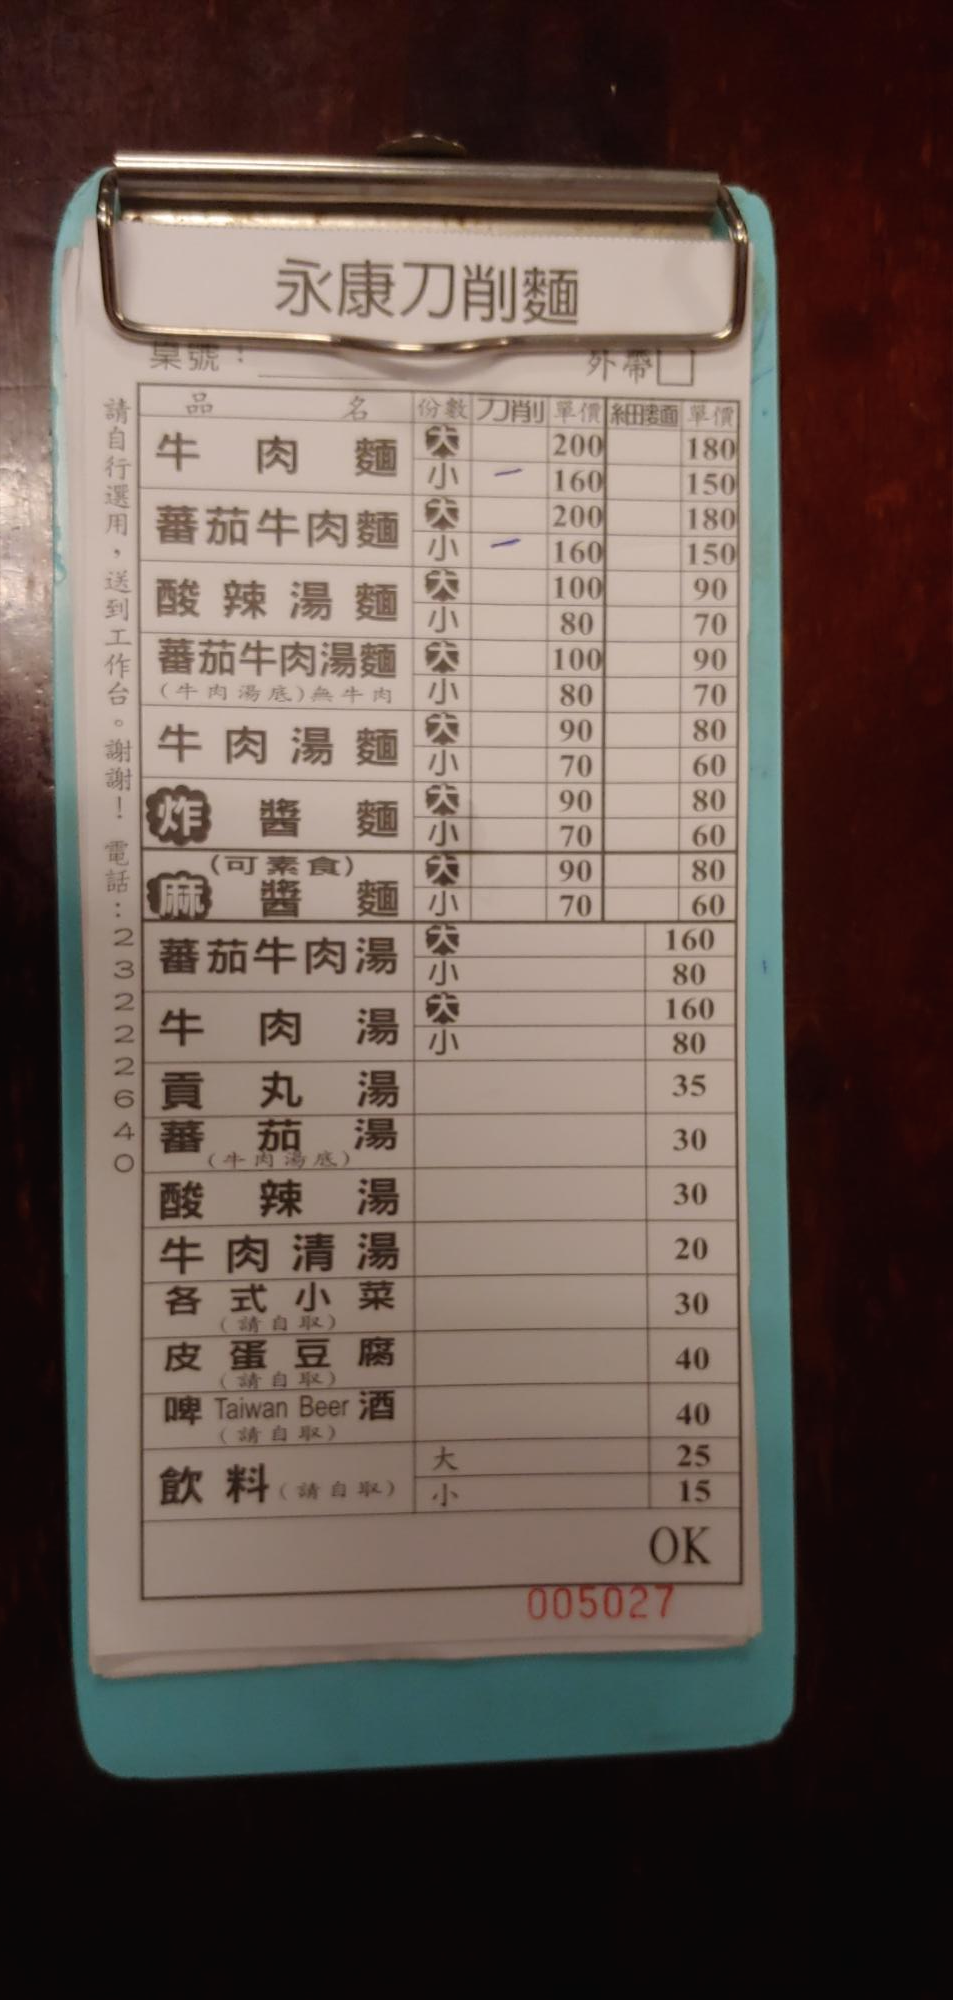 永康刀削麵
桌號：
外帶
品名 份數 刀削 單價 細麵 單價
牛肉麵 大 200 180
小 一 160 150
蕃茄牛肉麵 大 200 180
小 一 160 150
酸辣湯麵 大 100 90
小 80 70
蕃茄牛肉湯麵 大 100 90
(牛肉湯底)無牛肉 小 80 70
牛肉湯麵 大 90 80
小 70 60
炸醬麵 大 90 80
小 70 60
(可素食) 大 90 80
麻醬麵 小 70 60
蕃茄牛肉湯 大 160
小 80
牛肉湯 大 160
小 80
貢丸湯 35
蕃茄湯 30
(牛肉湯底)
酸辣湯 30
牛肉清湯 20
各式小菜 30
(請自取)
皮蛋豆腐 40
(請自取)
啤Taiwan Beer酒 40
(請自取)
飲料(請自取) 大 25
小 15
OK
005027
請自行選用，送到工作台。謝謝！電話：23222640